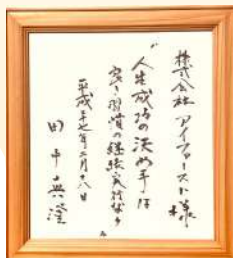 株式会社 アイファースト 様
“人生成功の決め手は
良き習慣の継続実行なり
平成十七年二月十八日
田中真澄